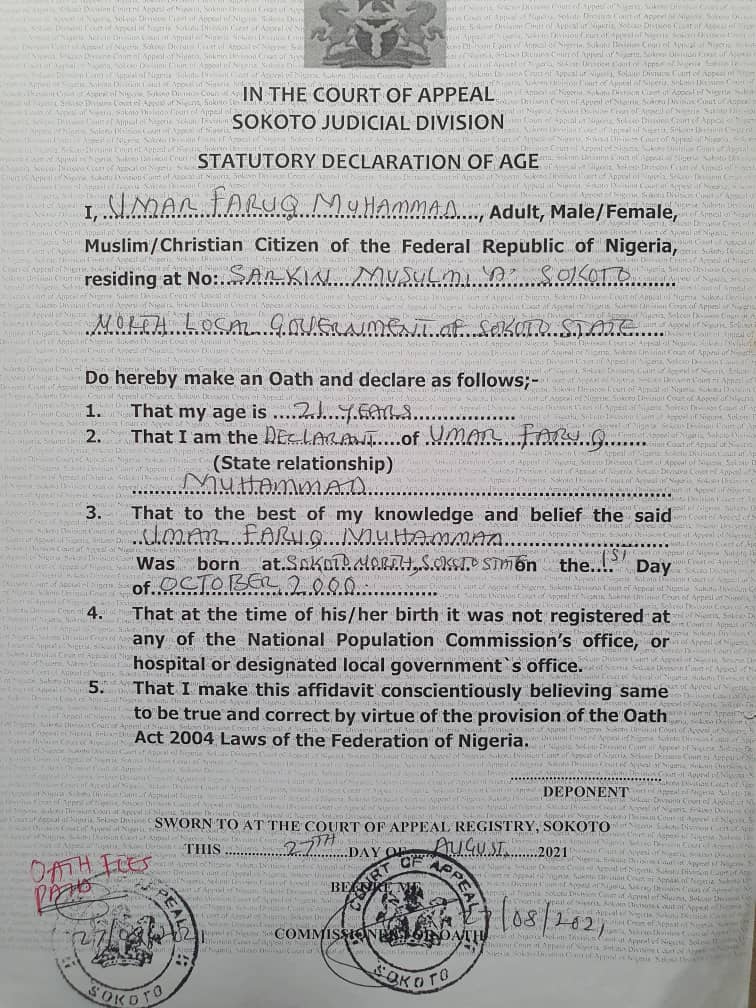 IN THE COURT OF APPEAL
SOKOTO JUDICIAL DIVISION
STATUTORY DECLARATION OF AGE
I, UMAR FARUQ MUHAMMAD, Adult, Male/Female,
Muslim/Christian Citizen of the Federal Republic of Nigeria,
residing at No: SARKIN MUSULMI 'A' SOKOTO
NORTH LOCAL GOVERNMENT OF SOKOTO STATE
Do hereby make an Oath and declare as follows;-
1. That my age is 21 YEARS
2. That I am the DECLARANT of UMAR FARUQ
(State relationship)
MUHAMMAD
3. That to the best of my knowledge and belief the said
UMAR FARUQ MUHAMMAD
Was born at SOKOTO NORTH, SOKOTO STATE on the 1ST Day
of OCTOBER 2000
4. That at the time of his/her birth it was not registered at
any of the National Population Commission's office, or
hospital or designated local government`s office.
5. That I make this affidavit conscientiously believing same
to be true and correct by virtue of the provision of the Oath
Act 2004 Laws of the Federation of Nigeria.
DEPONENT
SWORN TO AT THE COURT OF APPEAL REGISTRY, SOKOTO
THIS 27TH DAY OF AUGUST 2021
OATH FEES
PAID
BEFORE ME
COURT OF APPEAL
27/08/2021
COMMISSIONER FOR OATH
SOKOTO
APPEAL
SOKOTO